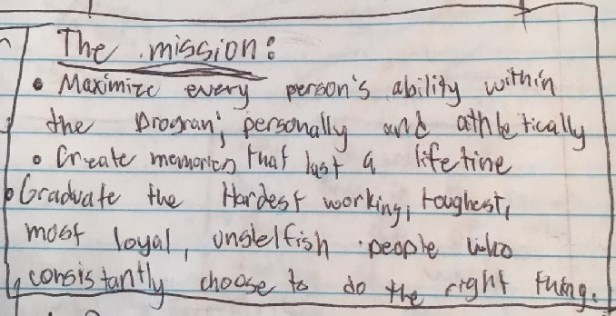 The mission:
• Maximize every person's ability within
the program; personally and athletically
• Create memories that last a lifetime
• Graduate the Hardest working, toughest,
most loyal, unslelfish people who
consistantly choose to do the right thing.